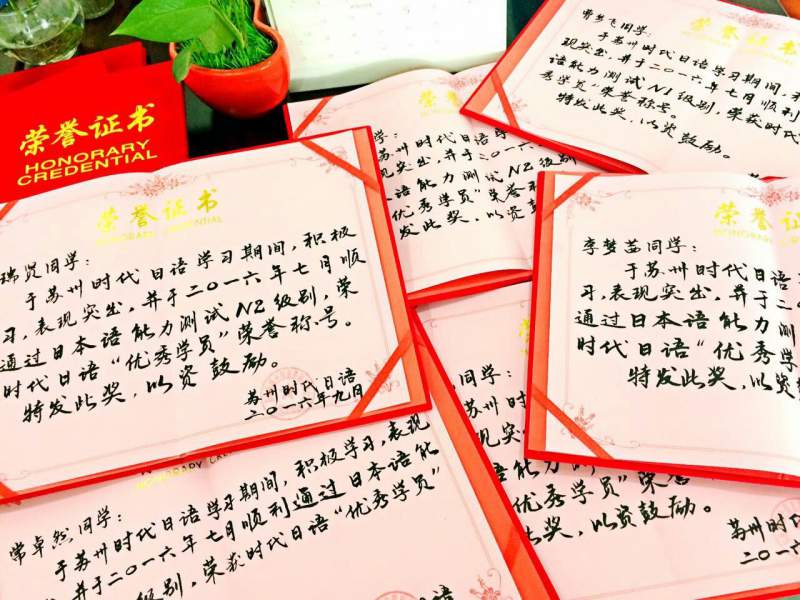 荣誉证书
HONORARY
CREDENTIAL
荣誉证书
HONORARY CREDENTIAL
瑞贤同学：
于苏州时代日语学习期间，积极
习，表现突出，并于二〇一六年七月顺
通过日本语能力测试N2级别，荣
时代日语“优秀学员”荣誉称号。
特发此奖，以资鼓励。
苏州时代日语
二〇一六年九月
学：
苏州时代日语学
现突出，并于二〇一
语能力测试N2级
“优秀学员”荣誉
发此奖，以资
同学：
于苏州时代日语学习期间，
现突出，并于二〇一六年七月顺利
语能力测试N1级别，荣获时代
秀学员”荣誉称号。
特发此奖，以资鼓励。
荣誉证
HONORARY
同学：
于苏州时代日语
习，表现突出，并于二
通过日本语能力测
时代日语“优秀学
特发此奖，以资
HONORARY
常卓然同学：
于苏州时代日语学习期间，积极学习，表现
并于二〇一六年七月顺利通过日本语能
级别，荣获时代日语“优秀学员”
同学：
学员”荣誉
此奖，以资鼓励。
苏州时
二〇一六